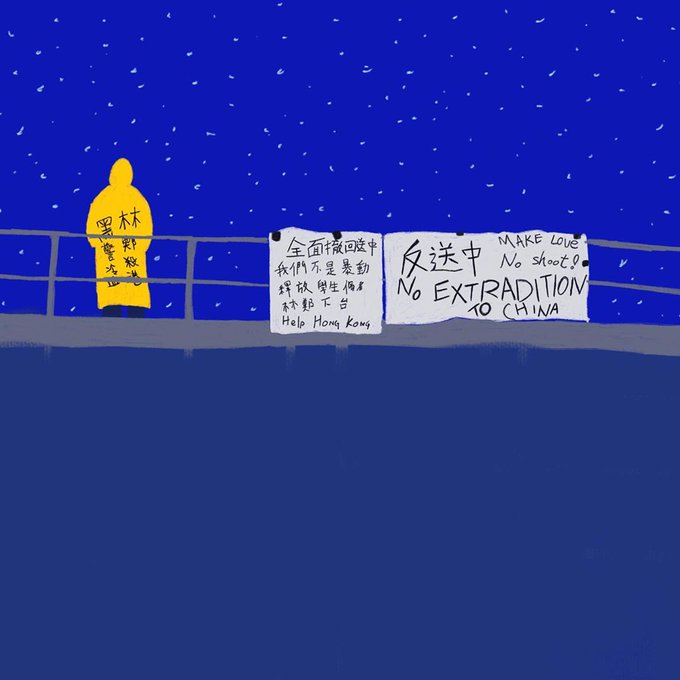 林鄭殺港
黑警冷血
全面撤回送中
我們不是暴動
釋放學生傷者
林鄭下台
Help Hong Kong
反送中
MAKE LOVE
No shoot!
No EXTRADITION
TO CHINA